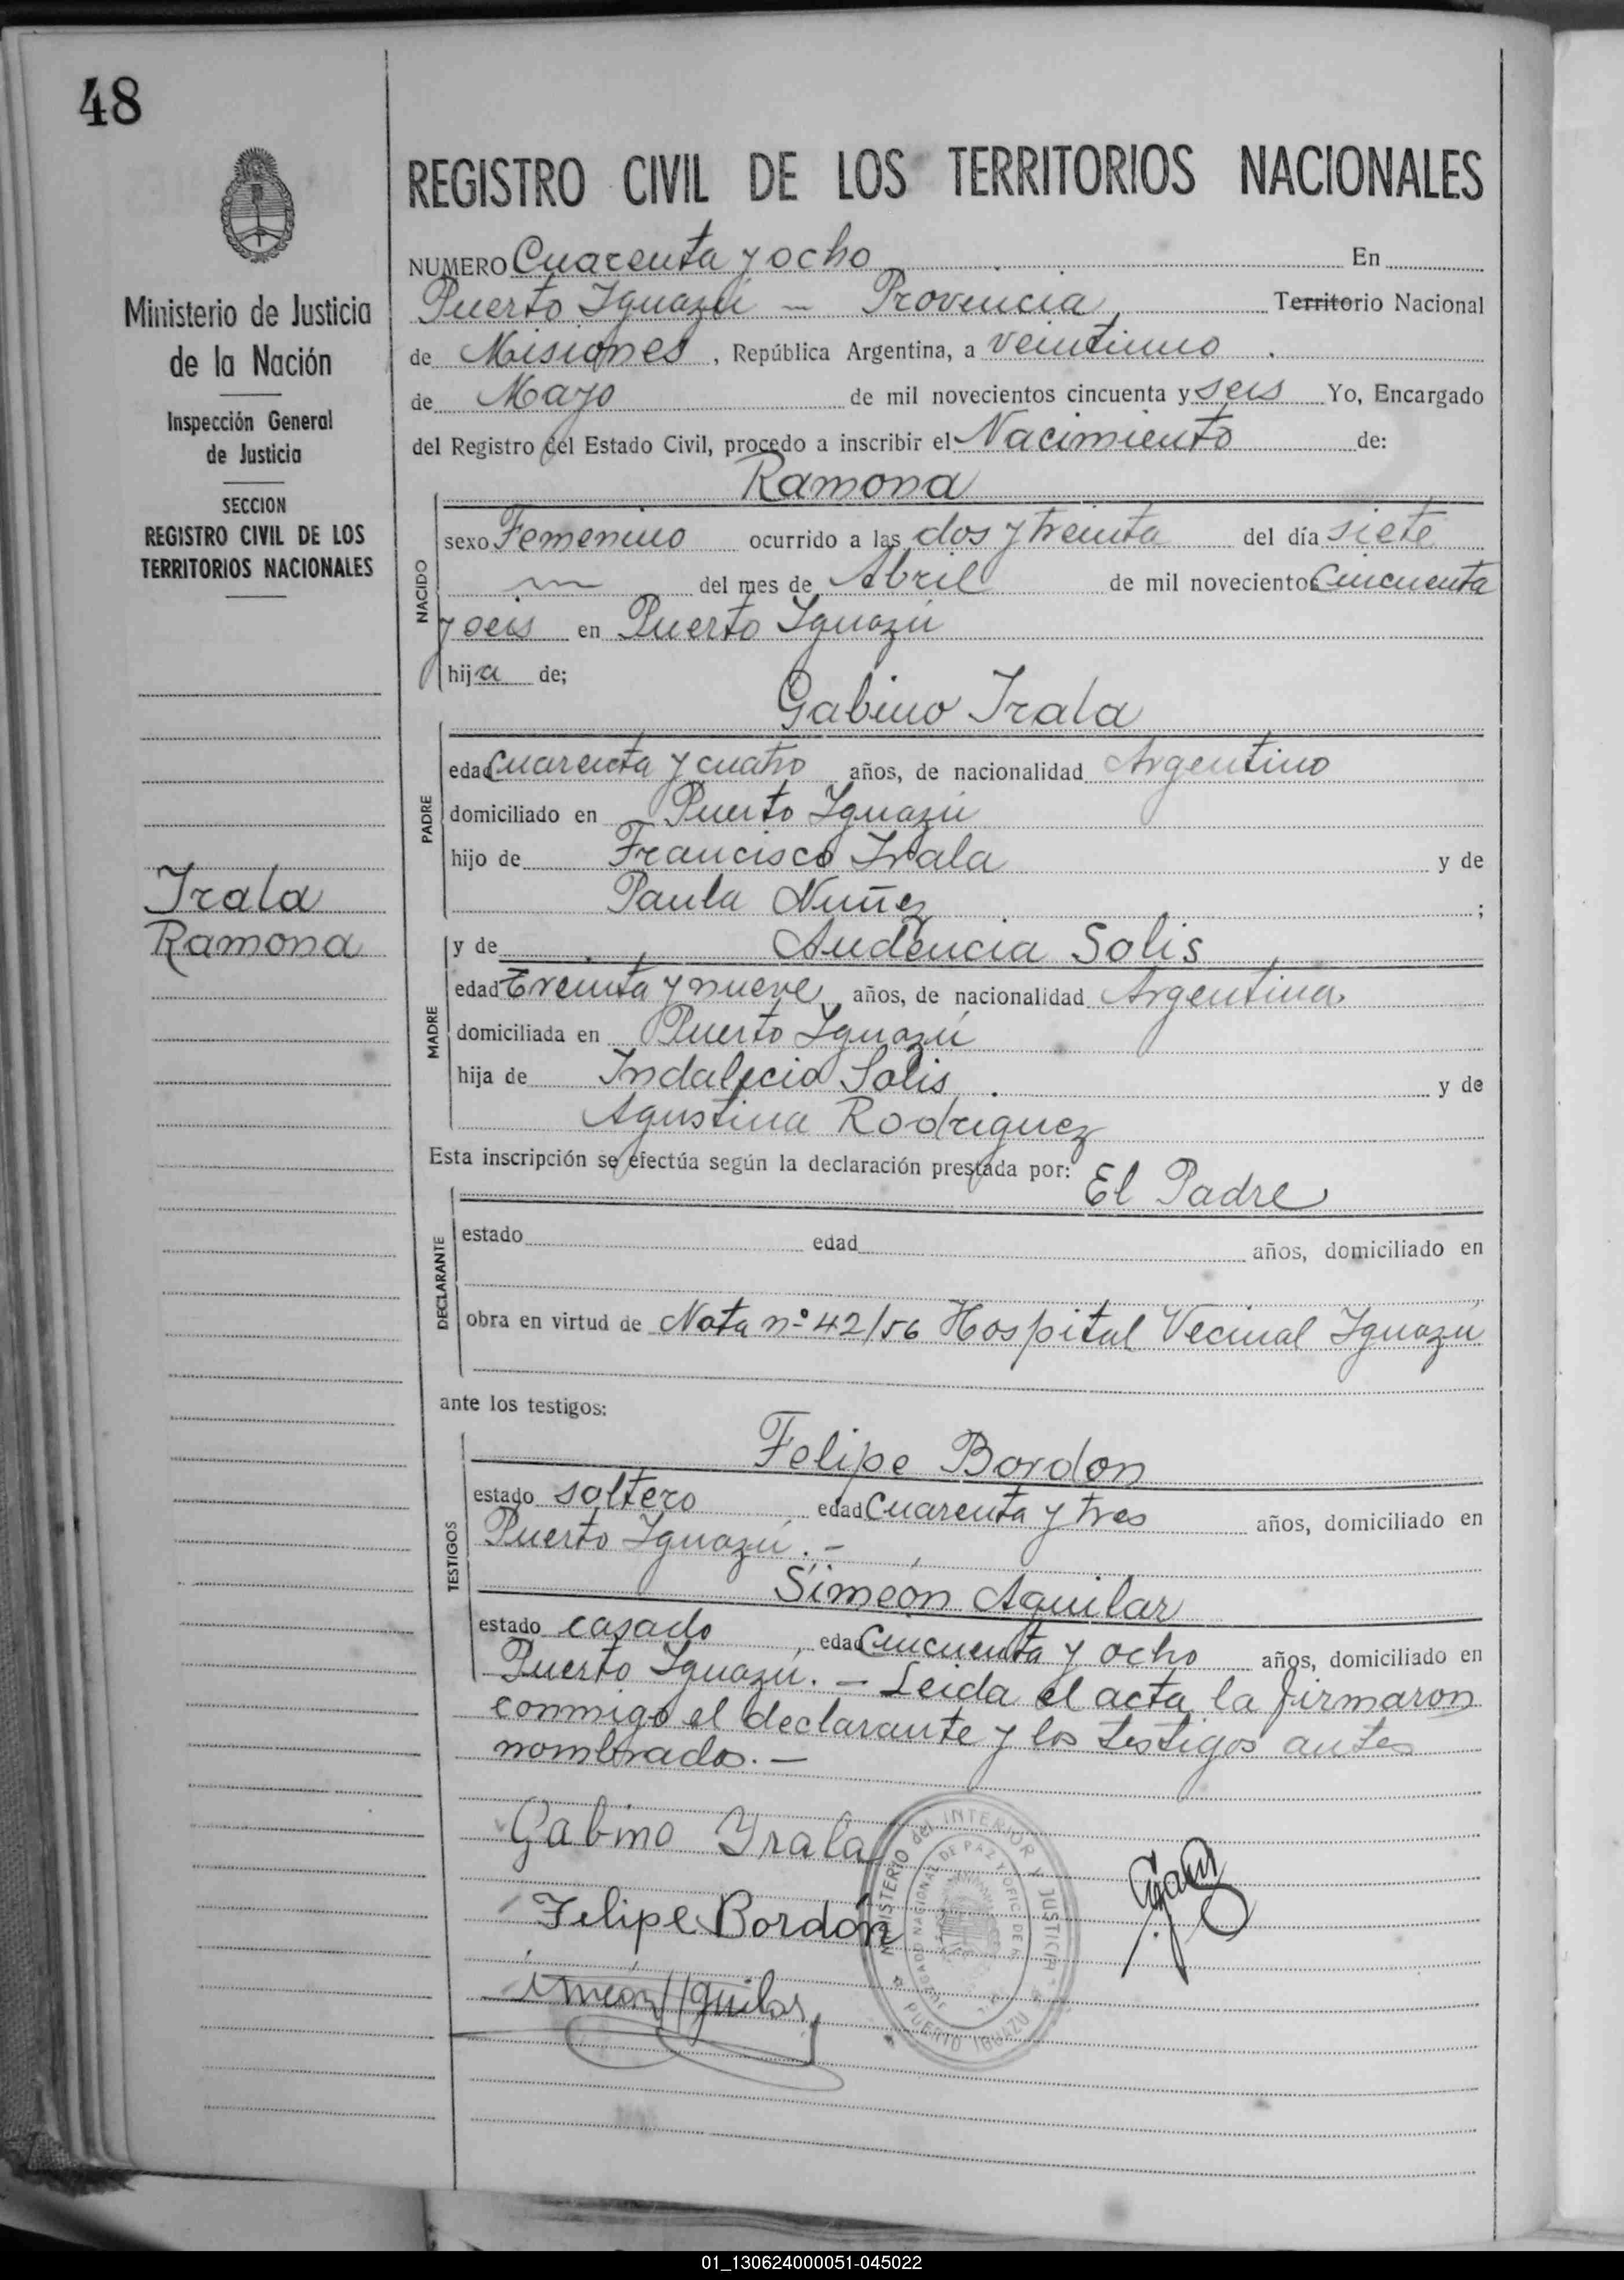 48
Ministerio de Justicia
de la Nación
Inspección General
de Justicia
SECCION
REGISTRO CIVIL DE LOS
TERRITORIOS NACIONALES
Irala
Ramona
REGISTRO CIVIL DE LOS TERRITORIOS NACIONALES
NUMERO Cuarenta y ocho En
Puerto Iguazú - Provincia, Territorio Nacional
de Misiones, República Argentina, a veintiuno
de Mayo de mil novecientos cincuenta y seis Yo, Encargado
del Registro del Estado Civil, procedo a inscribir el Nacimiento de:
Ramona
NACIDO
sexo Femenino ocurrido a las dos y treinta del día siete
del mes de Abril de mil novecientos cincuenta
y seis en Puerto Iguazú
hija de;
Gabino Irala
PADRE
edad cuarenta y cuatro años, de nacionalidad Argentino
domiciliado en Puerto Iguazú
hijo de Francisco Irala y de
Paula Nuñez ;
MADRE
y de Audencia Solis
edad treinta y nueve años, de nacionalidad Argentina
domiciliada en Puerto Iguazú
hija de Indalecio Solis y de
Agustina Rodriguez
Esta inscripción se efectúa según la declaración prestada por: El Padre
DECLARANTE
estado edad años, domiciliado en
obra en virtud de Nota nº 42/56 Hospital Vecinal Iguazú
ante los testigos:
Felipe Bordon
TESTIGOS
estado soltero edad cuarenta y tres años, domiciliado en
Puerto Iguazú.-
Simeón Aguilar
estado casado edad cincuenta y ocho años, domiciliado en
Puerto Iguazú. - Leida el acta la firmaron
conmigo el declarante y los testigos antes
nombrados. -
Gabino Yrala
Felipe Bordón
Simeón Aguilar
MINISTERIO del INTERIOR Y JUSTICIA
JUZGADO NACIONAL DE PAZ Y OFIC. DE R.
PUERTO IGUAZU
01_130624000051-045022